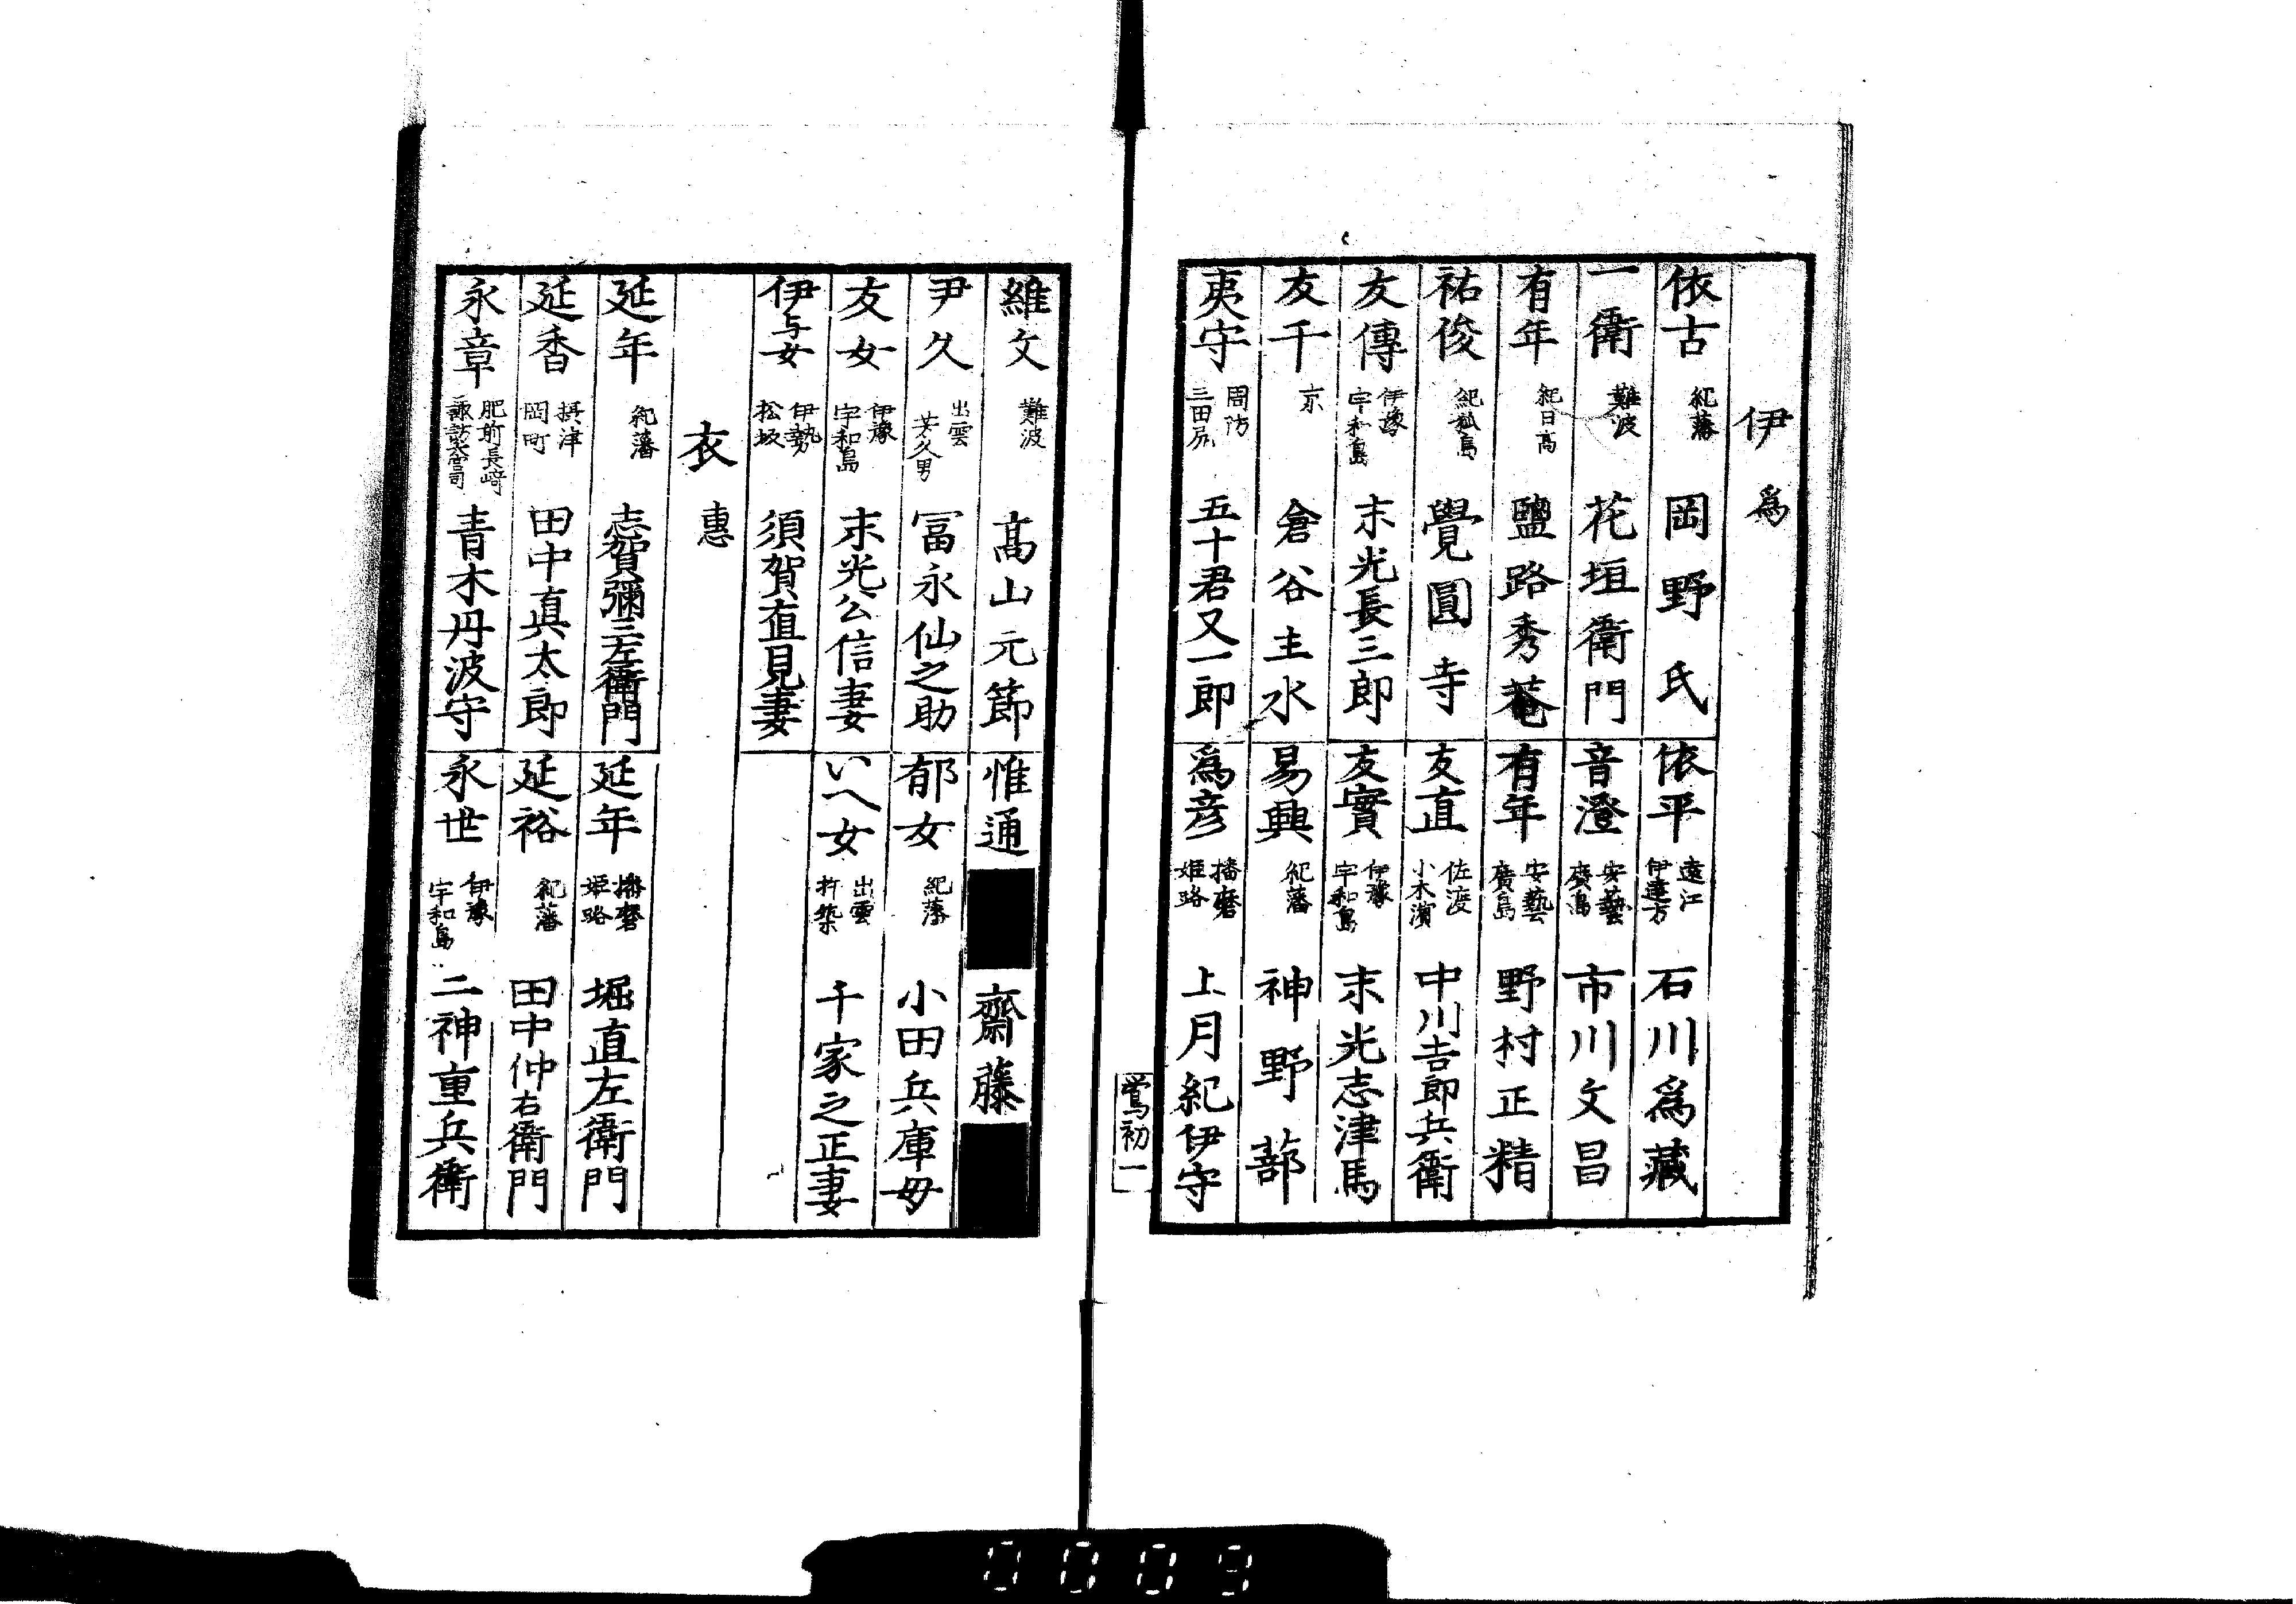 伊 爲
依古 紀藩 岡野氏
一衛 難波 花垣衛門
有年 紀日高 鹽路秀菴
祐俊 紀狐島 覺圓寺
友傳 伊豫宇和島 末光長三郎
友千 京 倉谷主水
夷守 周防三田尻 五十君又一郎
依平 遠江伊達方 石川爲藏
音澄 安藝廣島 市川文昌
有年 安藝廣島 野村正精
友直 佐渡小木濱 中川吉郎兵衛
友實 伊豫宇和島 末光志津馬
易興 紀藩 神野蔀
爲彦 播磨姫路 上月紀伊守
鴬初一
維文 難波 高山元節
尹久 出雲 芳久男 冨永仙之助
友女 伊豫宇和島 末光公信妻
伊与女 伊勢松坂 須賀直見妻
惟通 齋藤
郁女 紀藩 小田兵庫母
いへ女 出雲杵築 千家之正妻
衣 惠
延年 紀藩 志賀彌三左衛門
延香 摂津岡町 田中真太郎
永章 肥前長崎諏訪大宮司 青木丹波守
延年 播磨姫路 堀直左衛門
延裕 紀藩 田中仲右衛門
永世 伊豫宇和島 二神重兵衛
0009